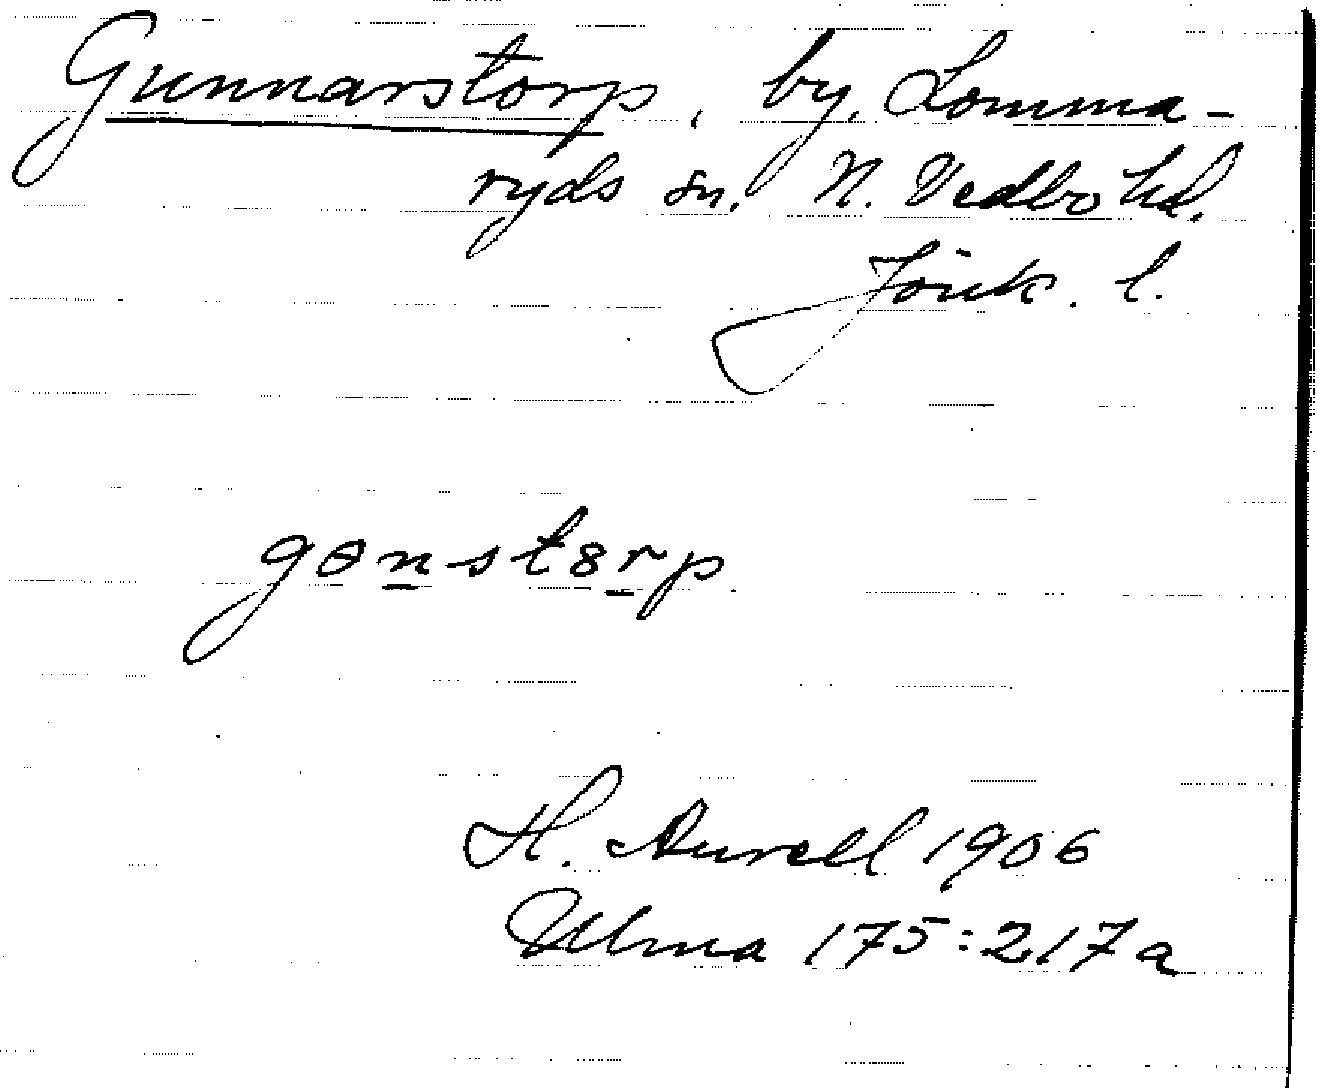 Gunnarstorp, by, Lomma-
ryds sn. N. Vedbo hd.
Jönk. l.
gɵn̲st8r̲p
H. Aurell 1906
Ulma 175:217a